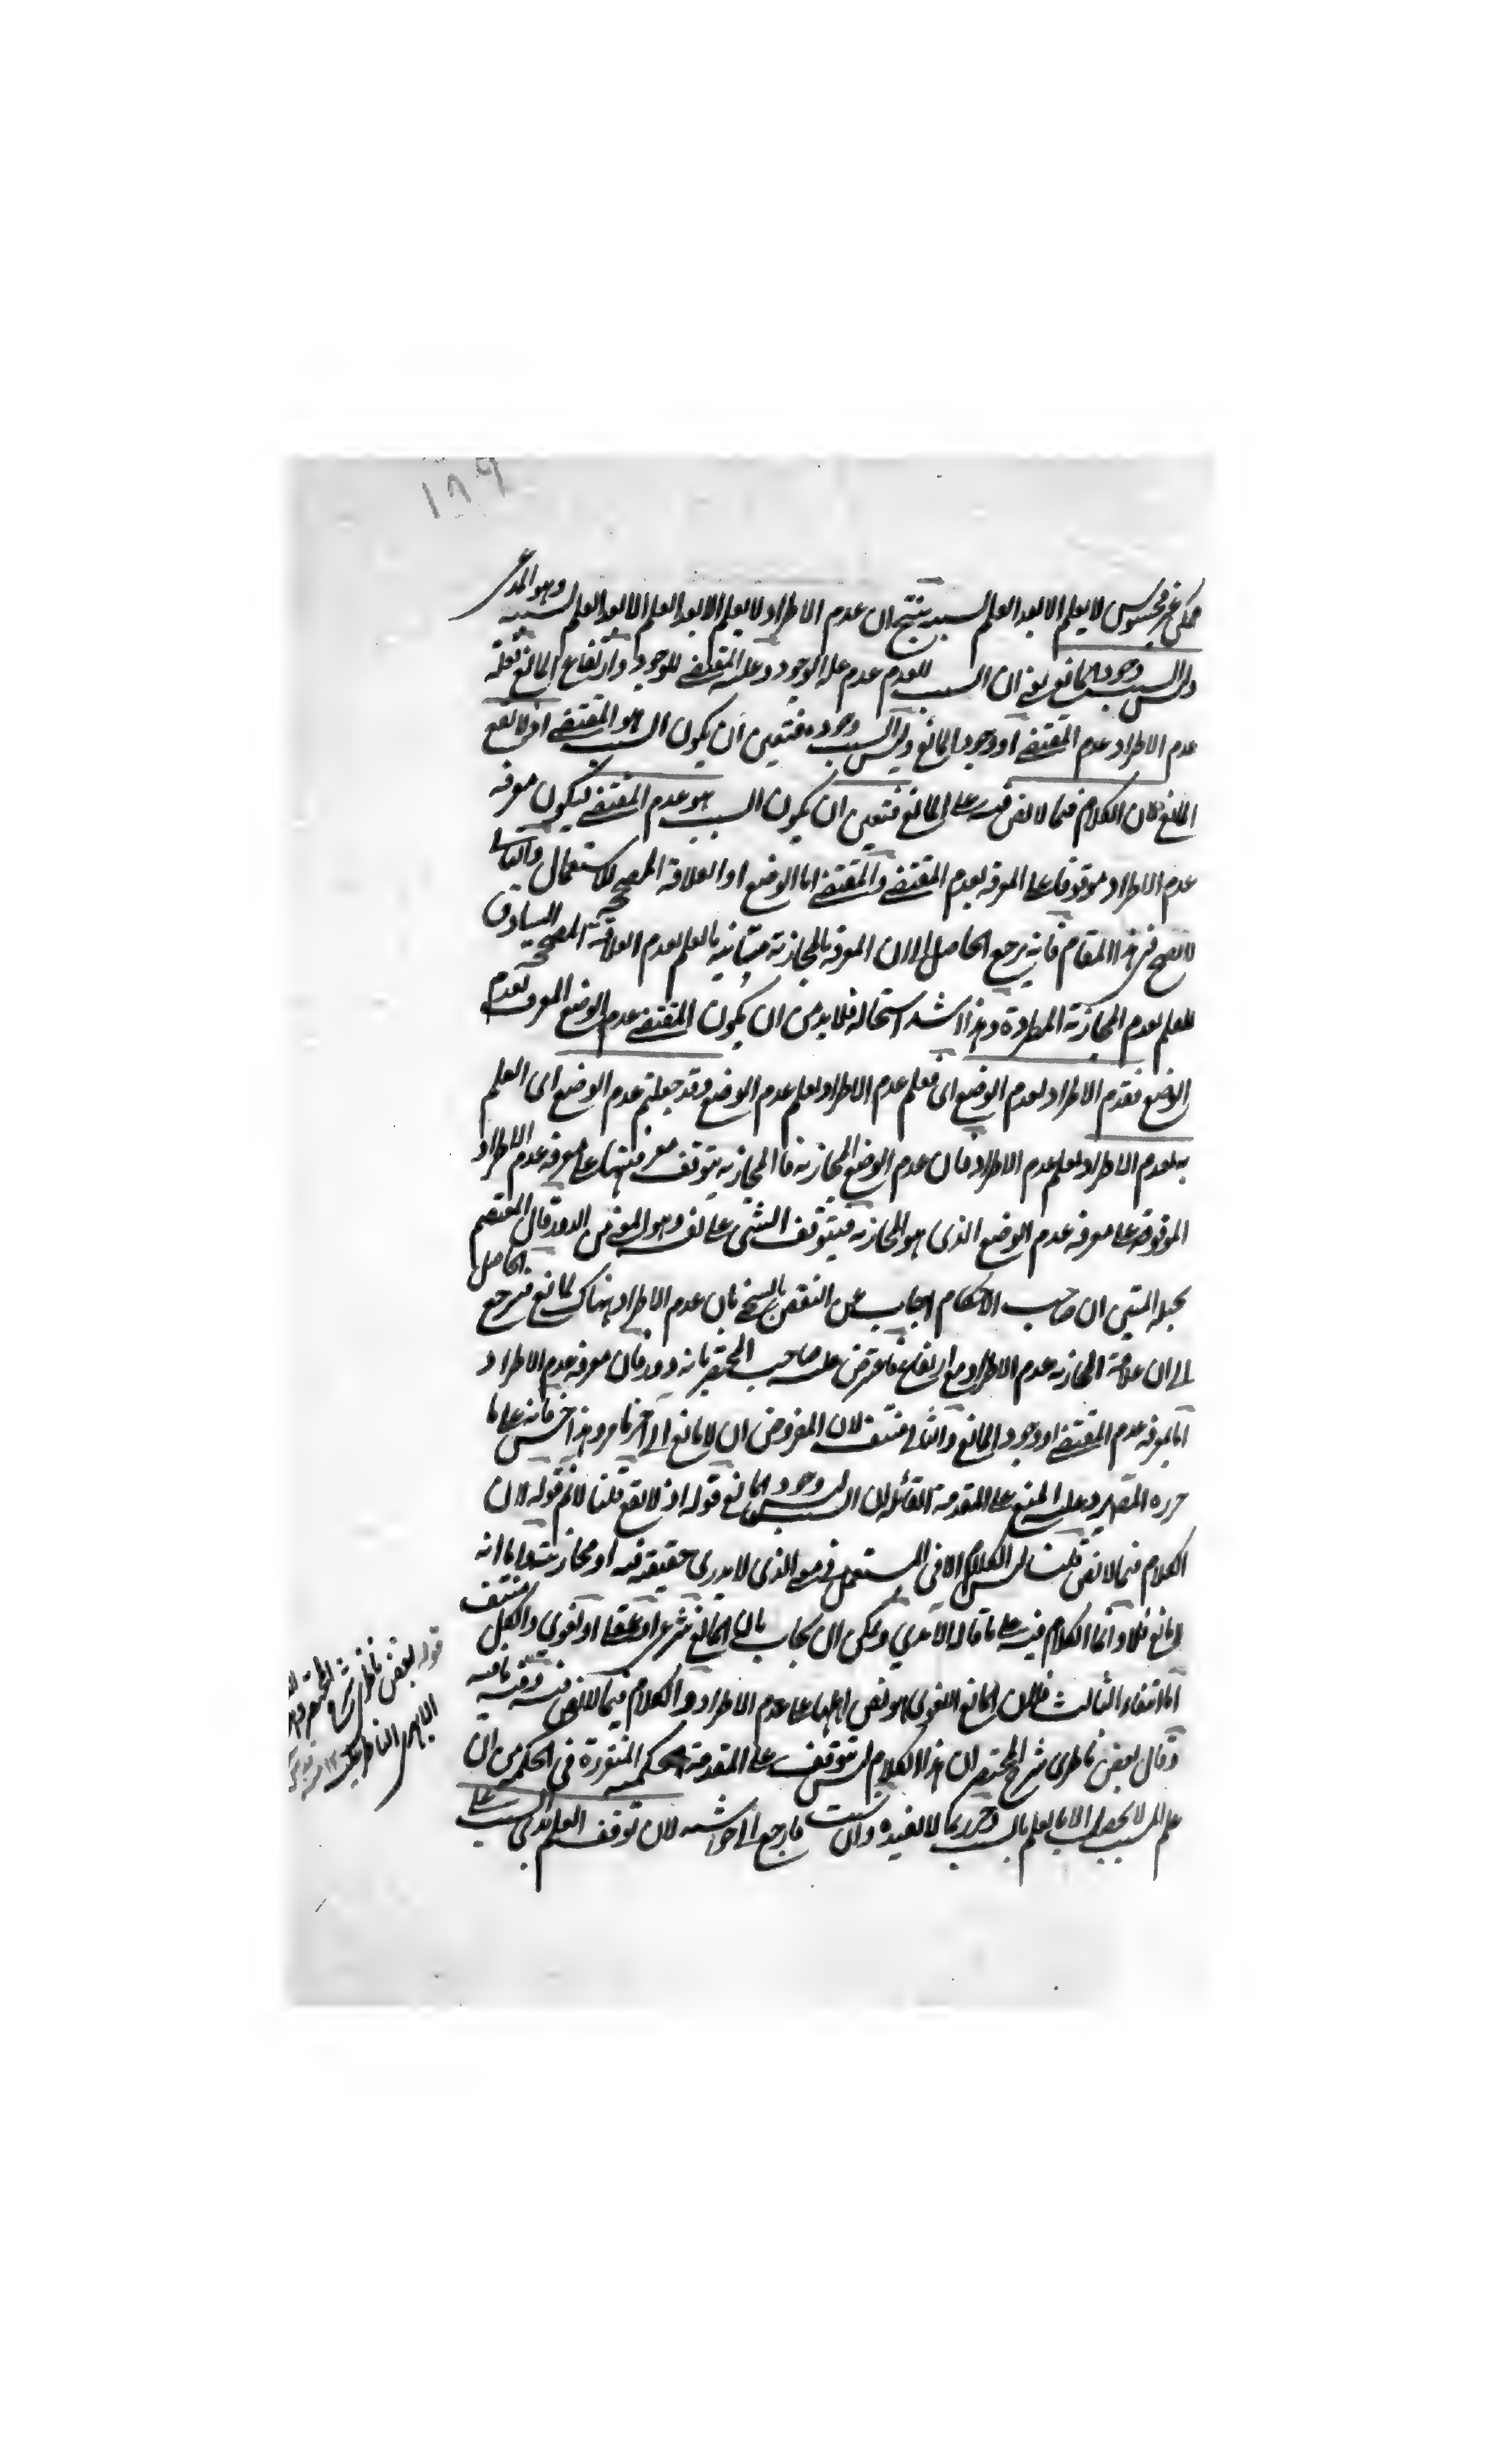 ١٨٩
ممكن غير محسوس لا يعلم الا بعد العلم بسببه ينتج ان عدم الاطراد لا يعلم الا بعد العلم بسببه وهو المدعى
وليس السبب وجود المانع يعني ان السبب للعدم عدم علة الوجود وعلة المقتضي للوجود وارتفاع المانع فعلة
عدم الاطراد عدم المقتضي او وجود المانع وليس السبب وجوده فتعين ان يكون السبب هو المقتضي اذ لا نقع
المانع لان الكلام فيما لا نص فيه على المانع فتعين ان يكون السبب هو عدم المقتضي ليكون معرفة
عدم الاطراد موقوفا على المعرفة بعدم المقتضي والمقتضي اما الوضع او العلاقة المصححة للاستعمال والثاني
لا يصح في هذا المقام فانه يرجع الحاصل الى ان المعرفة بالمجازية بالعلم بعدم العلاقة المصححة المساوق
للعلم بعدم المجازية المطردة وهذا اشد استحالة فلا بد من ان يكون المقتضي عدم الوضع المعرف بعدم
الوضع فعدم الاطراد لعدم الوضع اي فعلم عدم الاطراد لعلم عدم الوضع وقد جعلتم عدم الوضع اي العلم
به لعدم الاطراد لعلم عدم الاطراد فان عدم الوضع المجازية فالمجازية يتوقف معرفتها على معرفة عدم الاطراد
الموقوفة على معرفة عدم الوضع الذي هو المجازية فيتوقف الشيء على نفسه وهو المعني من الدور قال المعتصم
بحبله المتين ان صاحب الاحكام اجاب عن النقض بالسخي بان عدم الاطراد هناك لمانع فيرجع الحاصل
الى ان علامة المجازية عدم الاطراد مع ارتفاع فاعترض عليه صاحب المختصر بانه دور فان معرفة عدم الاطراد
اما بمعرفة عدم المقتضي او وجود المانع والثاني منتف لان المفروض ان لا مانع الى آخر ما مر وهذا فانه على ما
حرره المصـ يرد عليه المنع على المقدمة القائلة ان السبب ليس وجود المانع قوله اذ لا نقع قلنا لا نم قوله لان
الكلام فيما لا نص قلنا ليس الكلام الا في المستعمل في معنى الذي لا يدرى حقيقة فيه او مجاز واما انه
لمانع فلا وانما الكلام فيه على ما قال الآمدي ويمكن ان يجاب بان المانع شرعي او عقلي او لغوي والكل منتف
اما انتفاء الثالث فلان المانع اللغوي هو نص اهلها على عدم الاطراد والكلام فيما لا نص فيه وفيه ما فيه
وقال بعض ناظري شرح المختصر ان هذا الكلام ليس يتوقف على المقدمة الحكمية المتقررة في الحكمة من ان
علم المسبب لا يحصل الا بالعلم بالسبب وحرر بما لا نفيده وان شئت فارجع الى حواشيه لان توقف العلم بذي السبب على
قوله بعض ناظري شرح المختصر